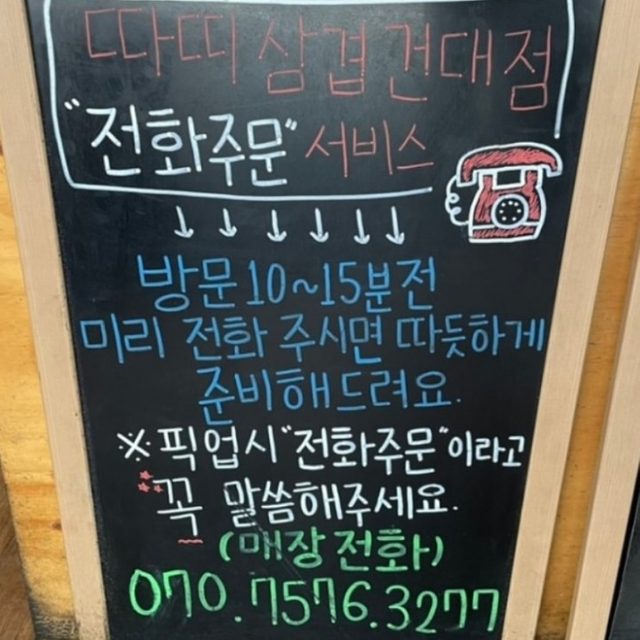 따띠삼겹 건대점
"전화주문" 서비스
방문 10~15분전
미리 전화 주시면 따듯하게
준비해드려요.
※픽업시 "전화주문"이라고
꼭 말씀해주세요.
(매장전화)
070.7576.3277